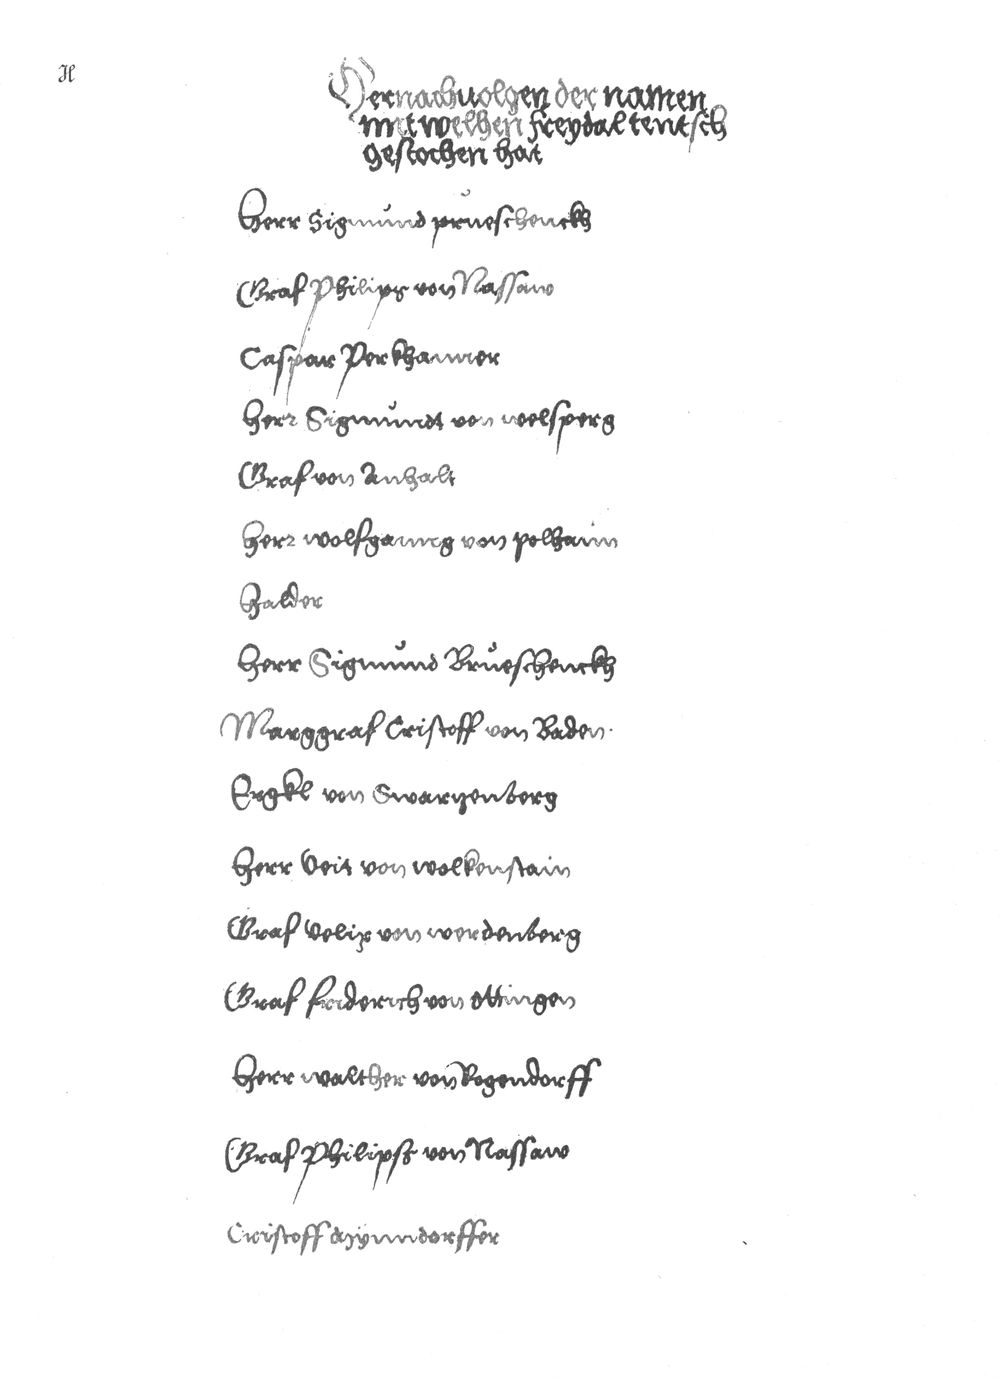 H
Hernachuolgen der namen
mit welhen freydal teutsch
gestochen hat
Herr Sigmund prueschenckh
Graf Philips von Nassaw
Caspar Perkhamer
Herr Sigmundt von welsperg
Graf von Anhalt
Herr wolfganng von polhaim
Halder
Herr Sigmund Brueschenckh
Marggraf Cristoff von Baden.
von Swarzenberg
Herr Veit von wolkenstain
Graf Velix von werdenberg
Graf friderich von Ottingen
Herr walther von Rogendorff
Graf Philips von Nassaw
Cristoff